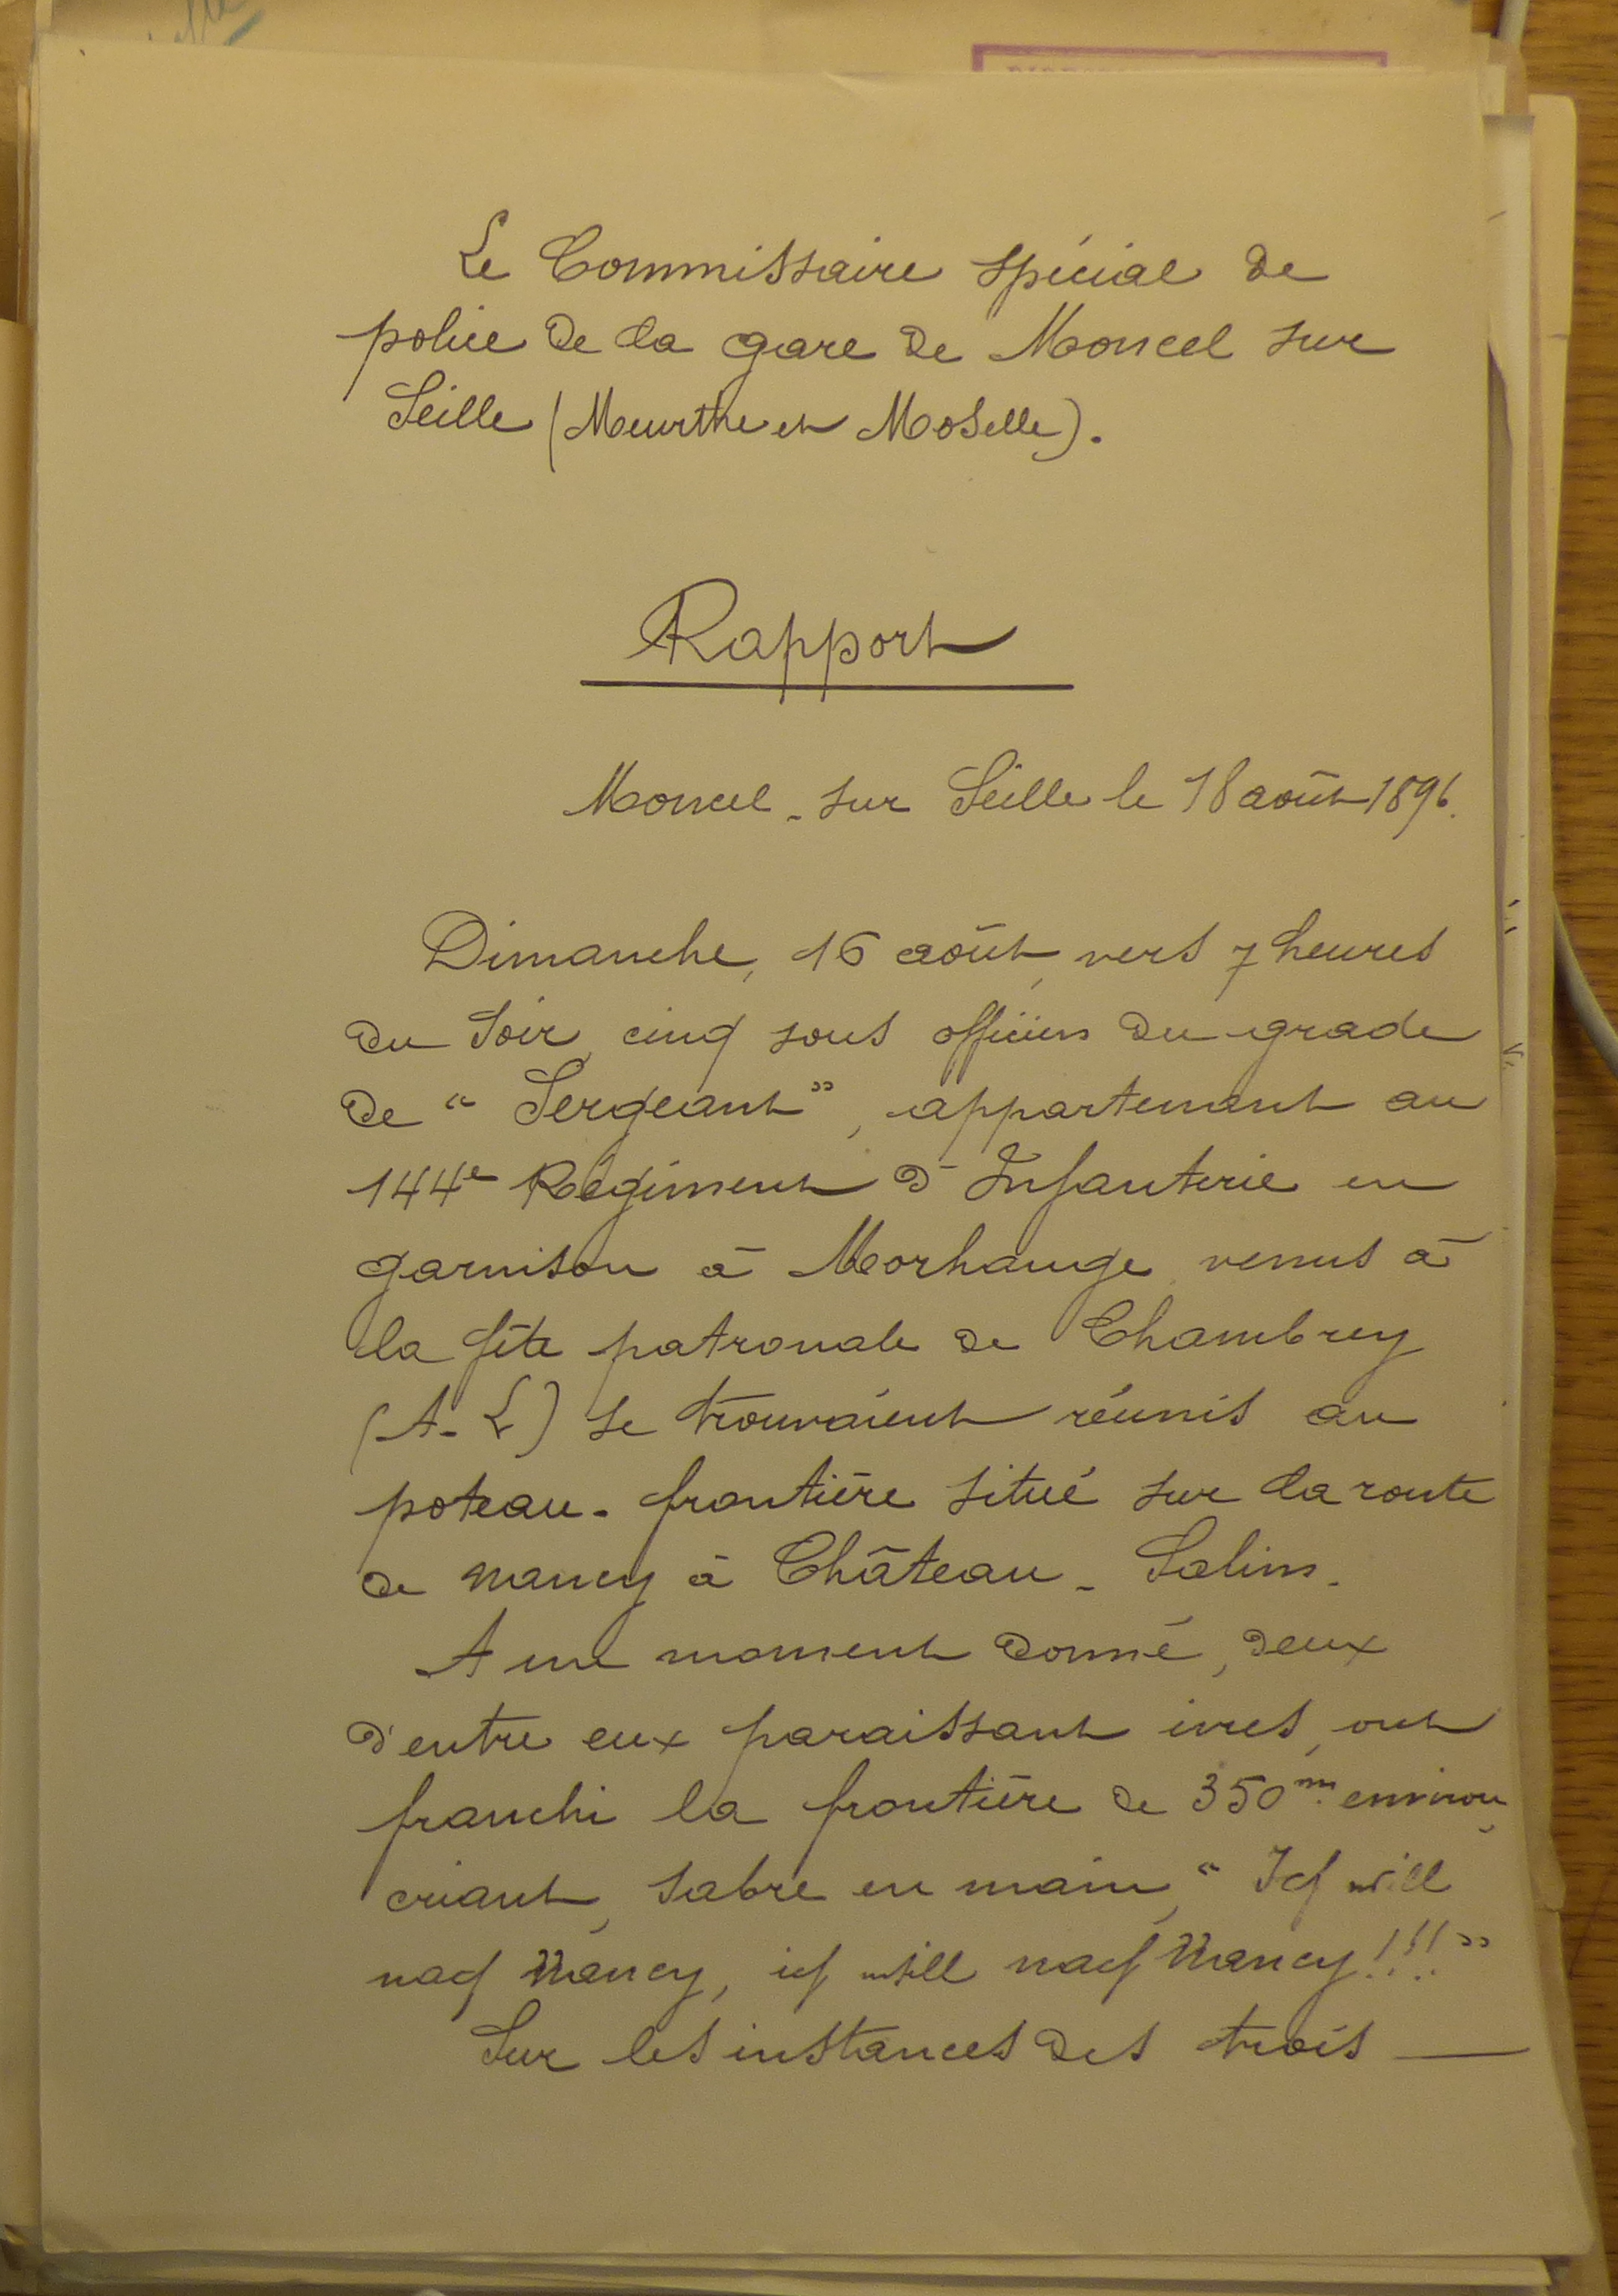 Le Commissaire spécial de
police de la gare de Moncel sur
Seille (Meurthe et Moselle).
Rapport
Moncel-sur Seille le 18 août 1896.
Dimanche, 16 août, vers 7 heures
du soir, cinq sous officiers du grade
de " Sergeant ", appartenant au
144e Régiment d'Infanterie en
garnison à Morhange, venus à
la fête patronale de Chambrey
(A. L) se trouvaient réunis au
poteau-frontière situé sur la route
de Nancy à Château-Salins.
A un moment donné, deux
d'entre eux paraissant ivres, ont
franchi la frontière de 350m. environ,
criant, sabre en main, " Ich will
nach Nancy, ich will nach Nancy!!! "
Sur les instances des trois —